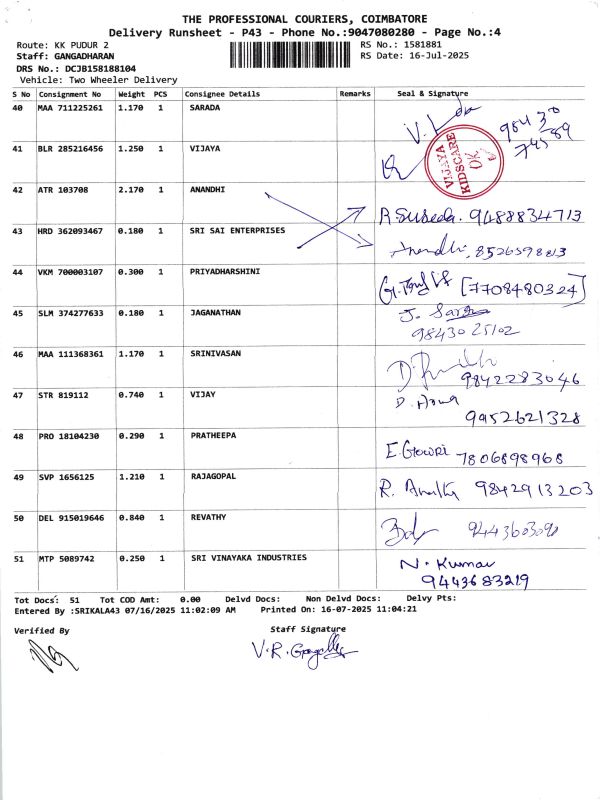 THE PROFESSIONAL COURIERS, COIMBATORE
Delivery Runsheet - P43 - Phone No.:9047080280 - Page No.:4
Route: KK PUDUR 2 RS No.: 1581881
Staff: GANGADHARAN RS Date: 16-Jul-2025
DRS No.: DCJB158188104
Vehicle: Two Wheeler Delivery
S No Consignment No Weight PCS Consignee Details Remarks Seal & Signature
40 MAA 711225261 1.170 1 SARADA V. 98430
74589
41 BLR 285216456 1.250 1 VIJAYA VIJAYA KIDSCARE
42 ATR 103708 2.170 1 ANANDHI R 9488834713
43 HRD 362093467 0.180 1 SRI SAI ENTERPRISES Anandhi, 8526598813
44 VKM 700003107 0.300 1 PRIYADHARSHINI [7708480324]
45 SLM 374277633 0.180 1 JAGANATHAN J.
9843025102
46 MAA 111368361 1.170 1 SRINIVASAN 9842283046
47 STR 819112 0.740 1 VIJAY D.
9952621328
48 PRO 18104230 0.290 1 PRATHEEPA E. Gowri 7806898968
49 SVP 1656125 1.210 1 RAJAGOPAL R. 9842913203
50 DEL 915019646 0.840 1 REVATHY
51 MTP 5089742 0.250 1 SRI VINAYAKA INDUSTRIES N. Kumar
9443683219
Tot Docs: 51 Tot COD Amt: 0.00 Delvd Docs: Non Delvd Docs: Delvy Pts:
Entered By :SRIKALA43 07/16/2025 11:02:09 AM Printed On: 16-07-2025 11:04:21
Verified By Staff Signature
V.R.